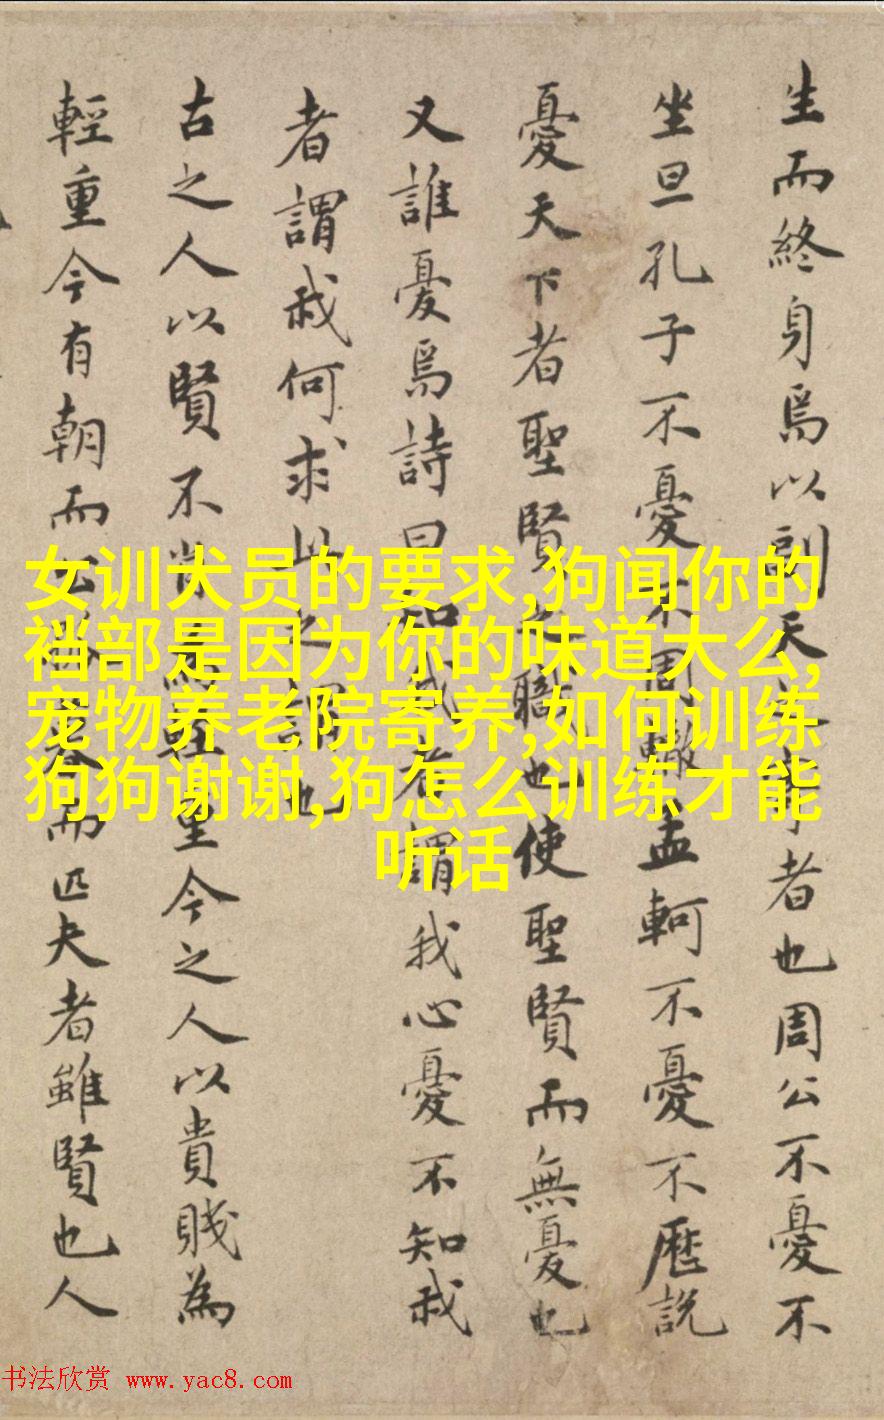 生而終身焉以副天
者也周公不憂不
坐旦孔子不憂不周
孟軻不憂不歷說
憂天下者聖賢之職也使聖賢而無憂也
又誰憂焉詩曰知我者謂我心憂不知我
者謂我何求此之謂也
古之人以賢不肖為輕重今之人以貴賤為
輕重今有朝而
而匹夫者雖賢也人
女训犬员的要求,狗闻你的
裆部是因为你的味道大么,
宠物养老院寄养,如何训练
狗狗谢谢,狗怎么训练才能
听话
书法欣赏 www.yac8.com